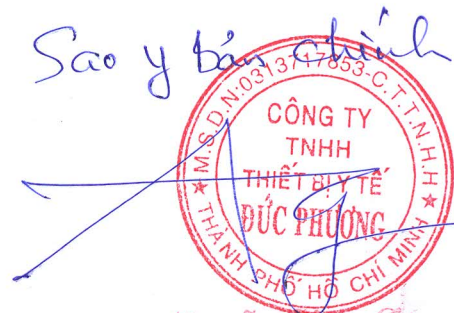 Sao y bản chính
M.S.D.N:0313717853-C.T.T.N.H.H
CÔNG TY
TNHH
THIẾT BỊ Y TẾ
ĐỨC PHƯỢNG
THÀNH PHỐ HỒ CHÍ MINH